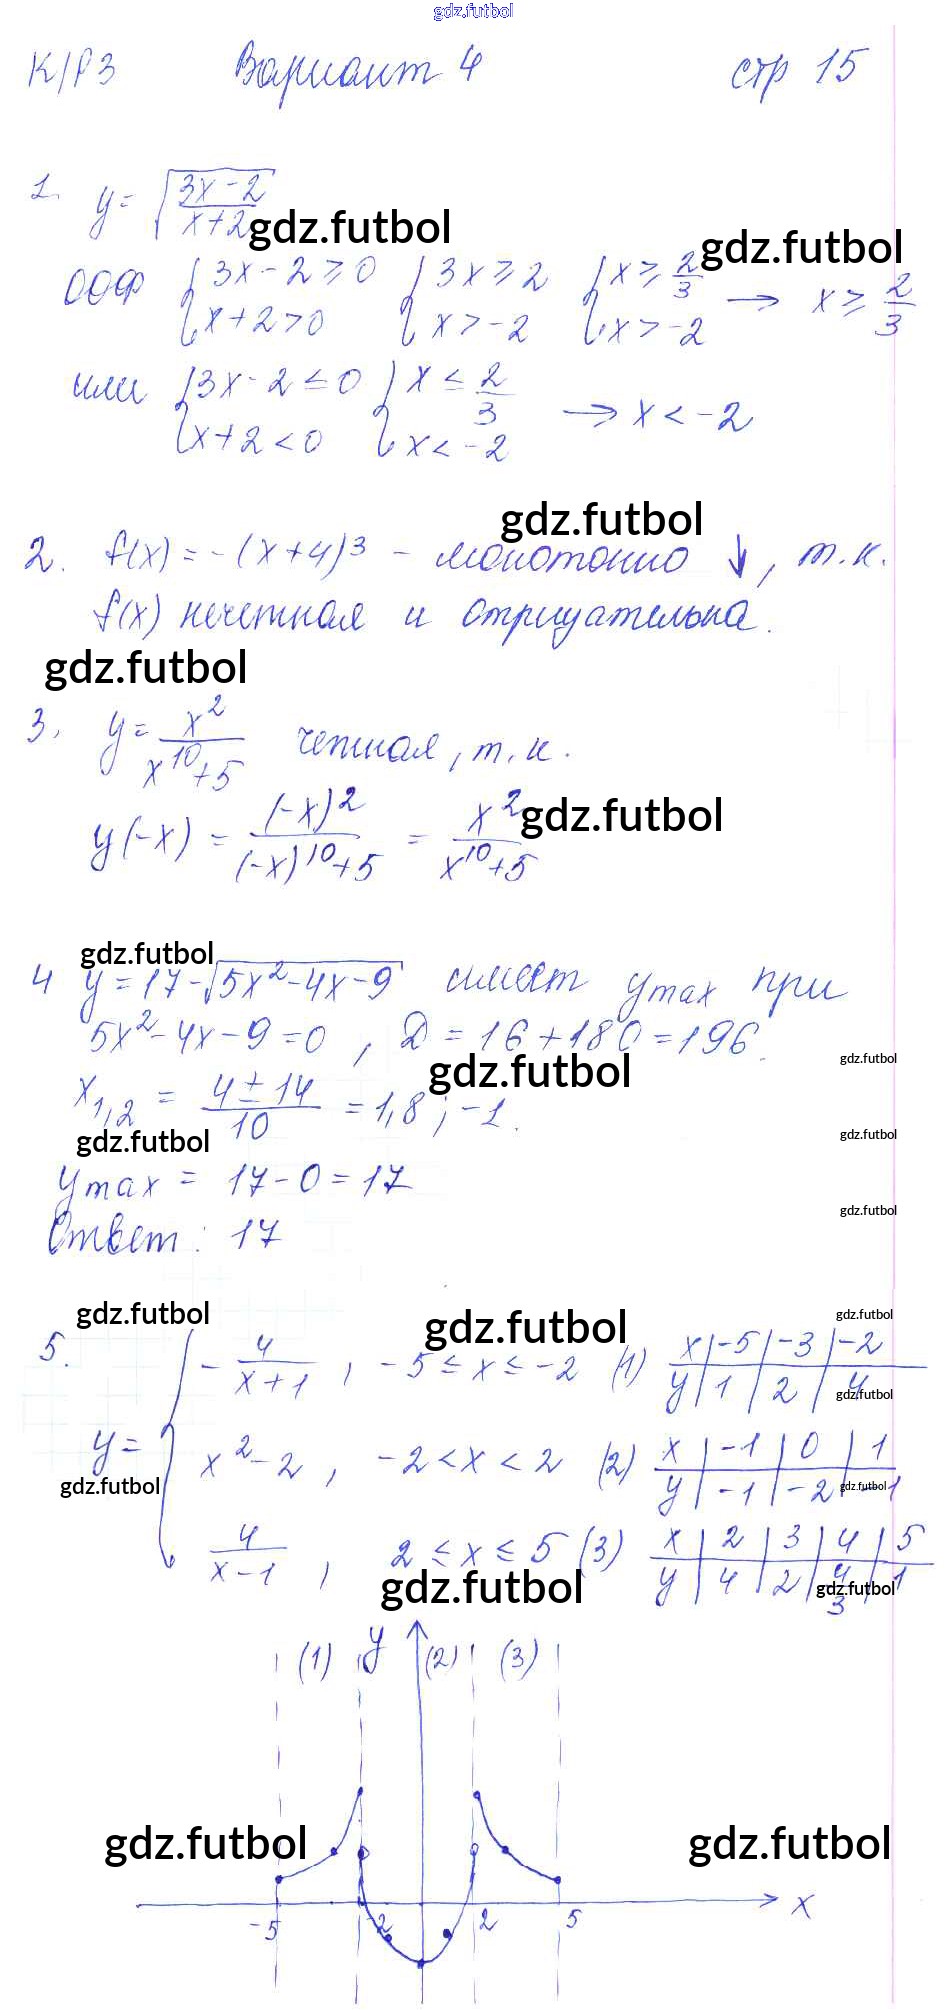 gdz.futbol
К/Р3 Вариант 4 стр 15
1. y = √((3x-2)/(x+2))
gdz.futbol gdz.futbol
ООФ { 3x-2 ≥ 0 { 3x ≥ 2 { x ≥ 2/3 → x ≥ 2/3
x+2 > 0 x > -2 x > -2
или { 3x-2 ≤ 0 { x ≤ 2/3 → x < -2
x+2 < 0 x < -2
gdz.futbol
2. f(x) = -(x+4)³ - монотонно ↓, т.к.
f(x) нечетная и отрицательна.
gdz.futbol
3. y = x²/(x¹⁰+5) четная, т.к.
y(-x) = (-x)²/((-x)¹⁰+5) = x²/(x¹⁰+5)
gdz.futbol
gdz.futbol
4 y = 17-√(5x²-4x-9) имеет ymax при
5x²-4x-9=0, D = 16+180=196.
gdz.futbol gdz.futbol
x1,2 = (4±14)/10 = 1,8; -1.
gdz.futbol gdz.futbol
ymax = 17-0 = 17
gdz.futbol
Ответ: 17
gdz.futbol gdz.futbol gdz.futbol
5. y = { -4/(x+1), -5 ≤ x ≤ -2 (1) x | -5 | -3 | -2
y | 1 | 2 | 4
gdz.futbol
x²-2, -2 < x < 2 (2) x | -1 | 0 | 1
y | -1 | -2 | -1
gdz.futbol gdz.futbol
4/(x-1), 2 ≤ x ≤ 5 (3) x | 2 | 3 | 4 | 5
y | 4 | 2 | 4/3 | 1
gdz.futbol gdz.futbol
(1) y (2) (3)
gdz.futbol gdz.futbol
-5 -2 2 5 x